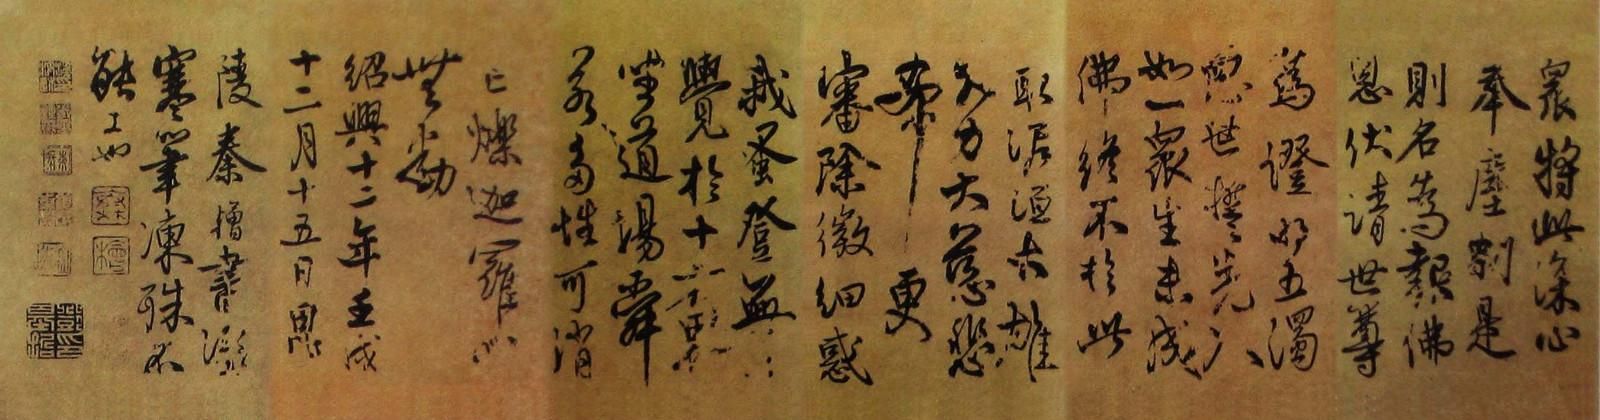 眾將此深心
奉塵剎是
則名為報佛
恩伏請世尊
為證明五濁
惡世誓先入
如一眾生未成
佛終不於此
取泥洹大雄
大力大慈悲
希更
審除微細惑
我蚤登無
覺於十方界
坐道場舜
若多性可消
亡爍迦羅心
無動
紹興十二年壬戌
十二月十五日思
陵秦檜書
寒筆凍殊不
能工也